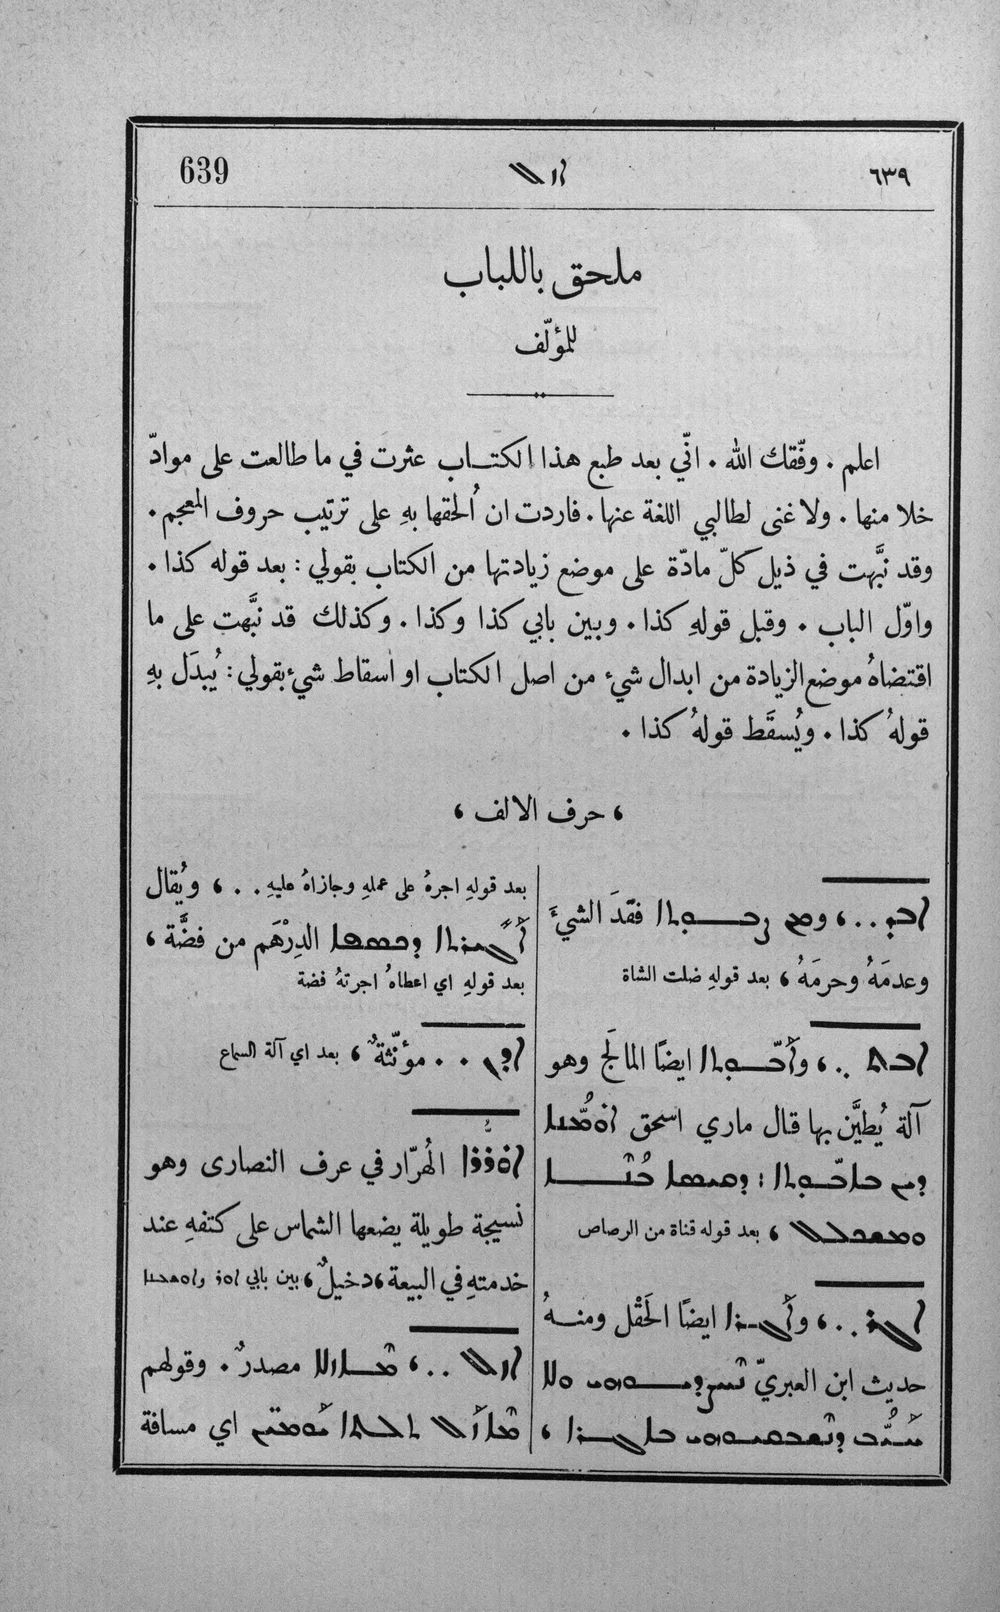 639 ܐܙܠ ٦٣٩
ملحق باللباب
للمؤلّف
اعلم . وفّقك الله . انّي بعد طبع هذا الكتاب عثرت في ما طالعت على موادّ
خلا منها . ولا غنى لطالبي اللغة عنها . فاردت ان أُلحقها بهِ على ترتيب حروف المعجم .
وقد نبَّهت في ذيل كلّ مادّة على موضع زيادتها من الكتاب بقولي : بعد قوله كذا .
واوّل الباب . وقبل قولهِ كذا . وبين بابي كذا وكذا . وكذلك قد نبَّهت على ما
اقتضاهُ موضع الزيادة من ابدال شيء من اصل الكتاب او اسقاط شيء بقولي : يُبدَل بهِ
قولهُ كذا . ويُسقَط قولهُ كذا .
، حرف الالف ،
ܐܒܕ . . ، فقدَ الشيءَ
وعدمَهُ وحرمَهُ ، بعد قولهِ ضلت الشاة
. . ، ايضًا المالَج وهو
آلة يُطيَّن بها قال ماري اسحق
، بعد قوله قناة من الرصاص
ܐܓܪ . . ، ايضًا الحَقْل ومنهُ
حديث ابن العبريّ ܘܠܐ
بعد قولهِ اجرهُ على عملهِ وجازاهُ عليهِ . . ، ويُقال
ܕܟܣܦܐ الدِرْهَم من فضَّة ،
بعد قولهِ اي اعطاهُ اجرتهُ فضة
ܐܕܢ . . مؤنّثةٌ ، بعد اي آلة السماع
الهُرّار في عرف النصارى وهو
نسيجة طويلة يضعها الشماس على كتفهِ عند
خدمتهِ في البيعة ، دخيلٌ ، بين بابي
ܐܙܠ . . ، مصدرٌ . وقولهم
اي مسافة